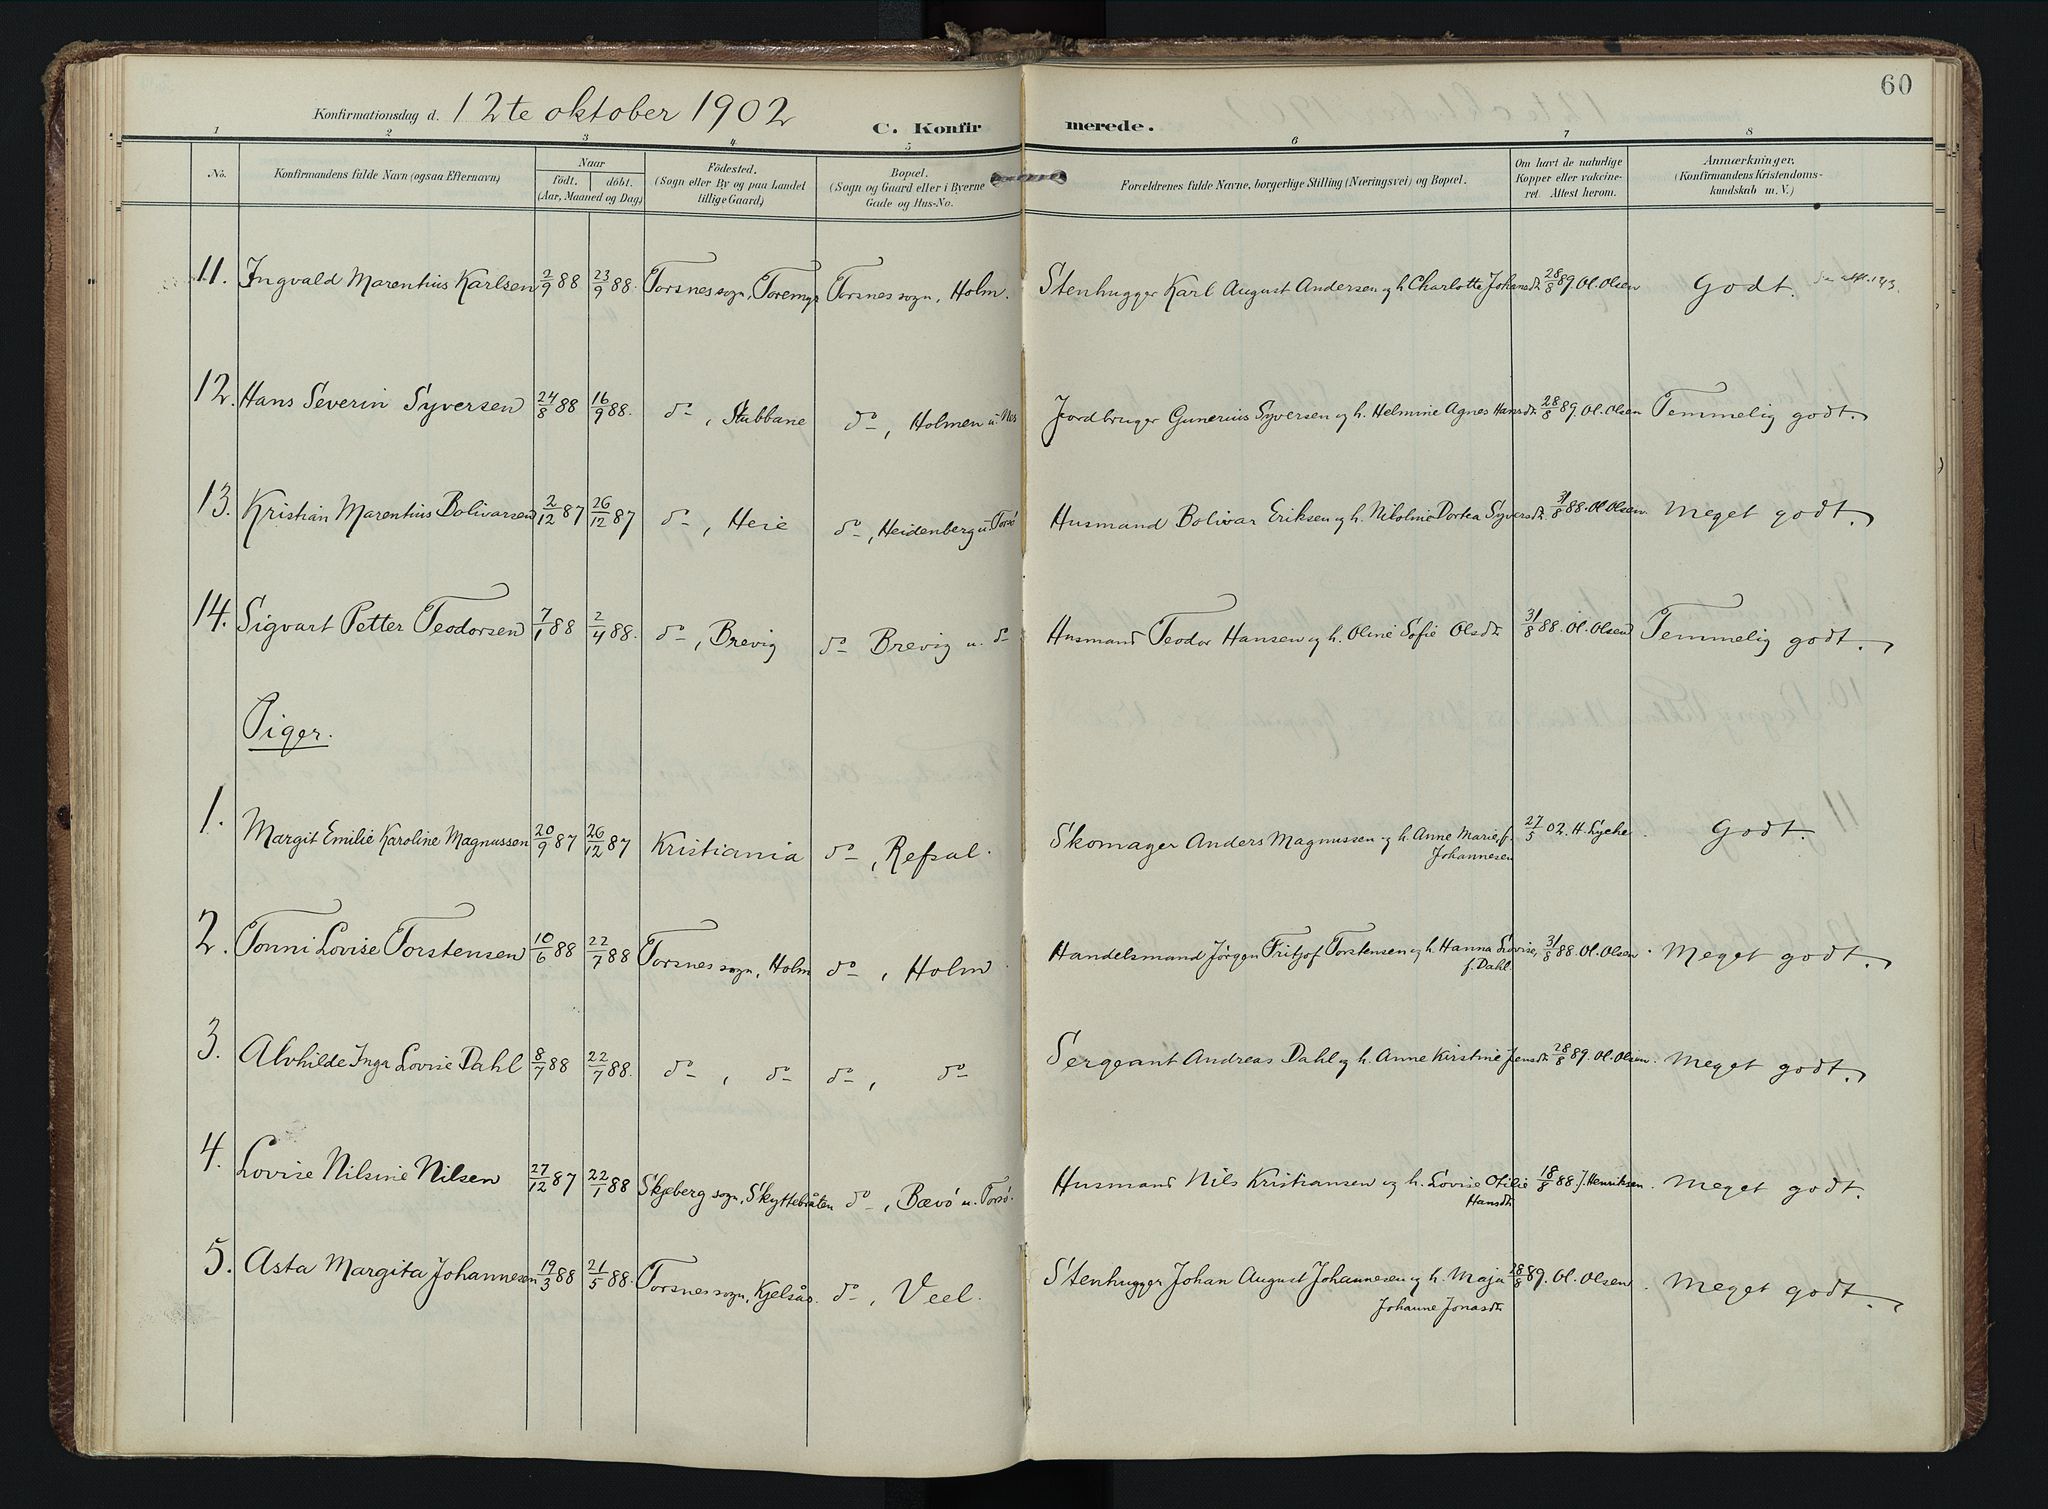 60
Konfirmationsdag d. 12te oktober 1902
C. Konfir merede.
1 2 3 4 5 6 7 8
No. Konfirmandens fulde Navn (ogsaa Efternavn) Naar födt. döbt. (Aar, Maaned og Dag) Födested. (Sogn eller By og paa Landet tillige Gaard) Bopæl. (Sogn og Gaard eller i Byerne Gade og Hus-No. Forældrenes fulde Navne, borgerlige Stilling (Næringsvei) og Bopæl. Om havt de naturlige Kopper eller vakcineret. Attest herom. Anmærkninger. (Konfirmandens Kristendomskundskab m. V.)
11. Ingvald Marenthius Karlsen 2/9 88 23/9 88. Torsnes sogn, Toremyr Torsnes sogn, Holm. Stenhugger Karl August Andersen og h. Charlotte Johansdr. 28/8 89. Ol. Olsen Godt.
12. Hans Severin Syversen 24/8 88 16/9 88. do, Stubbane do, Holmen u. Nes Jordbruger Gunerius Syversen og h. Helmine Agnes Hansdr. 28/8 89. Ol. Olsen Temmelig godt.
13. Kristian Marenthius Bolivarsen 2/12 87 26/12 87 do, Heie do, Heidenberg u. Torsö Husmand Bolivar Eriksen og h. Nikoline Dortea Syversdr. 31/8 88. Ol. Olsen. Meget godt.
14. Sigvart Petter Teodorsen 7/1 88 2/4 88. do, Brevig do Brevig u. do Husmand Teodor Hansen og h. Oline Sofie Olsdr. 31/8 88. Ol. Olsen Temmelig godt.
Piger.
1. Margit Emilie Karoline Magnussen 20/9 87 26/12 87 Kristiania do, Refsal. Skomager Anders Magnussen og h. Anne Marie, f. Johannesen 27/5 02. H. Lyche. Godt.
2. Tonni Lovise Torstensen 10/6 88 22/7 88 Torsnes sogn, Holm do, Holm Handelsmand Jörgen Fritjof Torstensen og h. Hanna Lovise, f. Dahl 31/8 88. Ol. Olsen. Meget godt.
3. Alvhilde Inga Lovise Dahl 8/7 88 22/7 88. do, do do, do Sergeant Andreas Dahl og h. Anne Kirstine Jensdr. 28/8 89. Ol. Olsen. Meget godt.
4. Lovise Nilsine Nilsen 27/12 87 22/1 88 Skjeberg sogn, Skyttebråten do, Bævö u. Torsö. Husmand Nils Kristiansen og h. Lovise Otilie Hansdr. 18/8 88. J. Henriksen. Meget godt.
5. Asta Margita Johannesen 19/3 88 21/5 88. Torsnes sogn, Kjelsås. do, Veel. Stenhugger Johan August Johannesen og h. Maja Johanne Jonasdr. 28/8 89. Ol. Olsen. Meget godt.